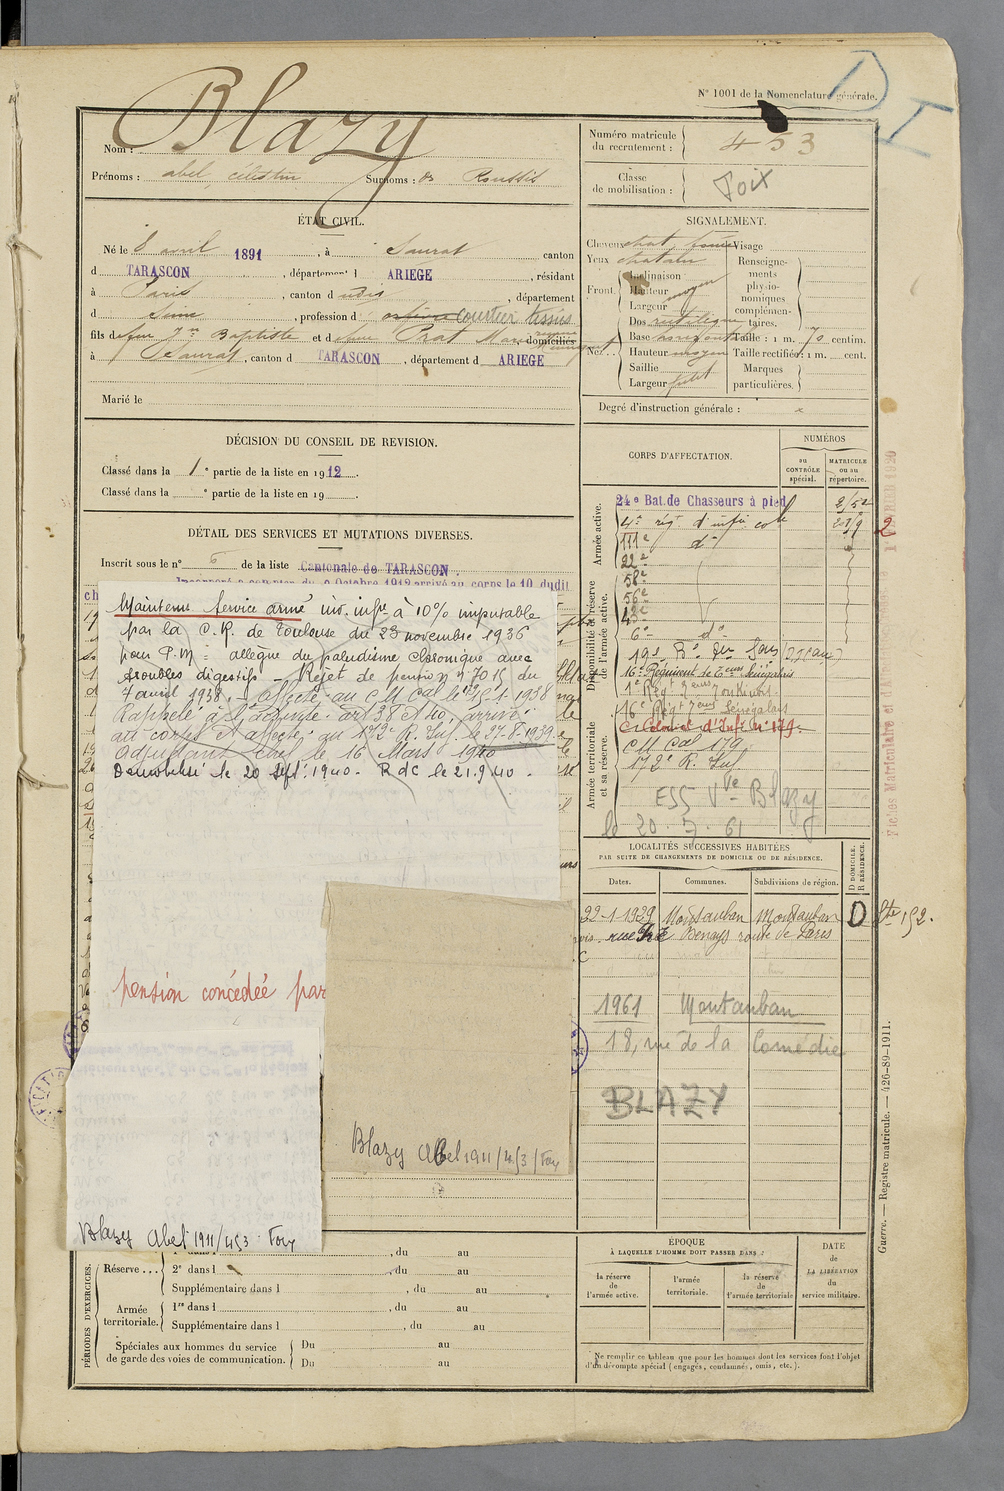 N° 1001 de la Nomenclature générale.
D I
Nom : Blazy
Prénoms : abel, célestin Surnoms : de Roussis
ÉTAT CIVIL.
Né le 8 avril 1891, à Saurat canton
d TARASCON, département d ARIEGE, résidant
à Paris, canton d udis, département
d Seine, profession d courtier tissus
fils de feu Jn Baptiste et de feue Prat Marie domiciliés
à Saurat, canton d TARASCON, département d ARIEGE
Marié le
DÉCISION DU CONSEIL DE REVISION.
Classé dans la 1e partie de la liste en 1912.
Classé dans la e partie de la liste en 19
DÉTAIL DES SERVICES ET MUTATIONS DIVERSES.
Inscrit sous le n° 6 de la liste Cantonale de TARASCON.
Incorporé à compter du 9 Octobre 1912 arrivé au corps le 10 dudit
Maintenu Service armé inv. infre à 10% imputable
par la C.R. de Toulouse du 23 novembre 1936
pour P.M = allègue du paludisme chronique avec
troubles digestifs - Rejet de pension n° 7015 du
7 avril 1938. - Affecté au CM Cal le 15-1-1938
Rappelé à l'activité art 38 et 40, arrivé
au corps et affecté au 172e R. Inf. le 27-8-1939.
Adjudant chef le 16 Mars 1940
Démobilisé le 20 Sept. 1940. RdC le 21.9.40.
pension concédée par
Blazy Abel 1911/453 Foix
Blazy Abel 1911/453/Foix
PÉRIODES D'EXERCICES.
Réserve...
1re dans l , du au
2e dans l , du au
Supplémentaire dans l , du au
Armée territoriale.
1re dans l , du au
Supplémentaire dans l , du au
Spéciales aux hommes du service de garde des voies de communication.
Du au
Du au
Numéro matricule du recrutement : 453
Classe de mobilisation : Foix
SIGNALEMENT.
Cheveux chat. foncé
Yeux chatain
Front. Inclinaison
Hauteur moyen
Largeur
Nez. Dos rectiligne
Base horizontale
Hauteur moyen
Saillie
Largeur petit
Visage
Renseignements physionomiques complémentaires.
Taille : 1 m. 70 centim.
Taille rectifiée : 1 m. cent.
Marques particulières.
Degré d'instruction générale :
CORPS D'AFFECTATION.
NUMÉROS
au CONTRÔLE spécial.
MATRICULE ou au répertoire.
Armée active.
Disponibilité et réserve de l'armée active.
Armée territoriale et sa réserve.
24e Bat. de Chasseurs à pied
4e rég. d'infie cole
111e d°
22e
58e
56e
42e
6e d°
16e Régiment de Teurs Sénégalais
16e Régt Teurs Sénégalais
C. Colonial d'Inf. n° 179.
CM Cal 179
172e R. Inf
ESS Vve Blazy
le 20.7.61
Fiches Matriculaire et d'A
LOCALITÉS SUCCESSIVES HABITÉES
PAR SUITE DE CHANGEMENTS DE DOMICILE OU DE RÉSIDENCE.
Dates. Communes. Subdivisions de région. D DOMICILE. R RÉSIDENCE.
22-1-1929 Montauban Montauban D
route de Paris
1961 Montauban
18, rue de la Comédie
BLAZY
ÉPOQUE
À LAQUELLE L'HOMME DOIT PASSER DANS :
la réserve de l'armée active.
l'armée territoriale.
la réserve de l'armée territoriale
DATE de LA LIBÉRATION du service militaire.
Ne remplir ce tableau que pour les hommes dont les services font l'objet
d'un décompte spécial (engagés, condamnés, omis, etc.).
Guerre. — Registre matricule. — 426-89-1911.